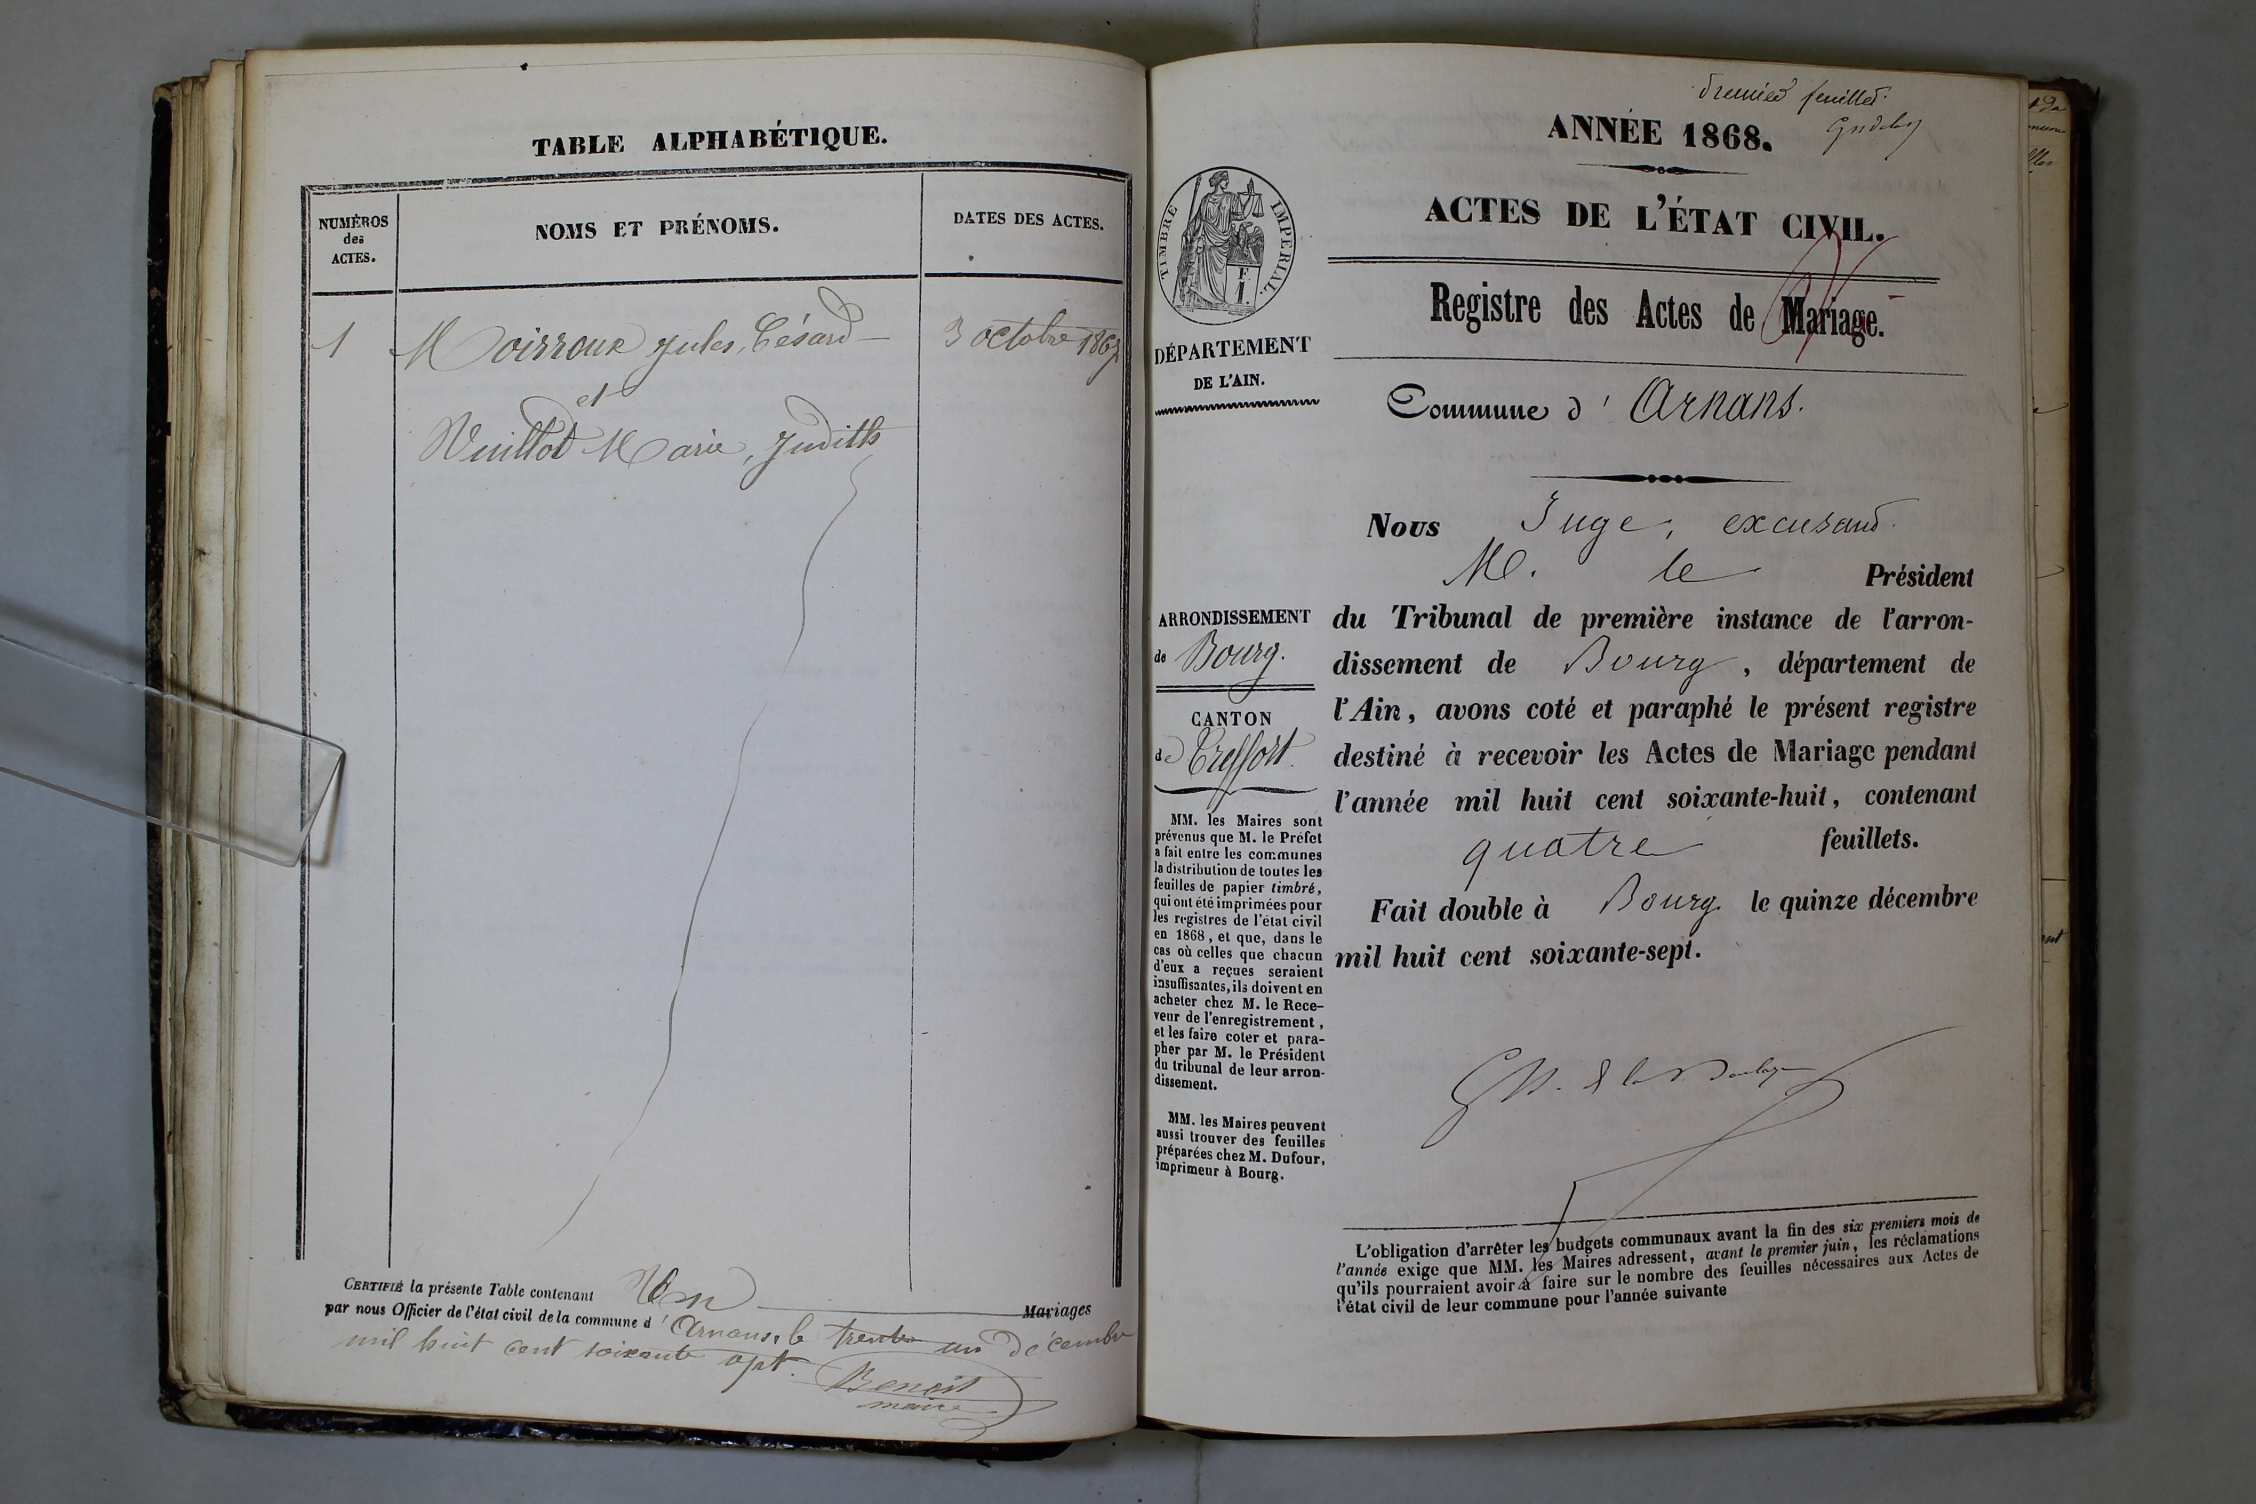 TABLE ALPHABÉTIQUE.
NUMÉROS
des
ACTES.
NOMS ET PRÉNOMS.
DATES DES ACTES.
1 Moirroux Jules, César 3 octobre 1867
et
Vuillot Marie, Judith
CERTIFIÉ la présente Table contenant Un Mariages
par nous Officier de l'état civil de la commune d' Arnans, le trente un décembre
mil huit cent soixante sept.
Benoit
maire
Premier feuillet.
ANNÉE 1868.
ACTES DE L'ÉTAT CIVIL.
Registre des Actes de Mariage.
TIMBRE IMPERIAL.
DÉPARTEMENT
DE L'AIN.
Commune d' Arnans.
Nous Juge, excusant
M. le Président
du Tribunal de première instance de l'arron-
dissement de Bourg, département de
l'Ain, avons coté et paraphé le présent registre
destiné à recevoir les Actes de Mariage pendant
l'année mil huit cent soixante-huit, contenant
quatre feuillets.
Fait double à Bourg le quinze décembre
mil huit cent soixante-sept.
ARRONDISSEMENT
de Bourg.
CANTON
de Treffort.
MM. les Maires sont
prévenus que M. le Préfet
a fait entre les communes
la distribution de toutes les
feuilles de papier timbré,
qui ont été imprimées pour
les registres de l'état civil
en 1868, et que, dans le
cas où celles que chacun
d'eux a reçues seraient
insuffisantes, ils doivent en
acheter chez M. le Rece-
veur de l'enregistrement,
et les faire coter et para-
pher par M. le Président
du tribunal de leur arron-
dissement.
MM. les Maires peuvent
aussi trouver des feuilles
préparées chez M. Dufour,
imprimeur à Bourg.
L'obligation d'arrêter les budgets communaux avant la fin des six premiers mois de
l'année exige que MM. les Maires adressent, avant le premier juin, les réclamations
qu'ils pourraient avoir à faire sur le nombre des feuilles nécessaires aux Actes de
l'état civil de leur commune pour l'année suivante